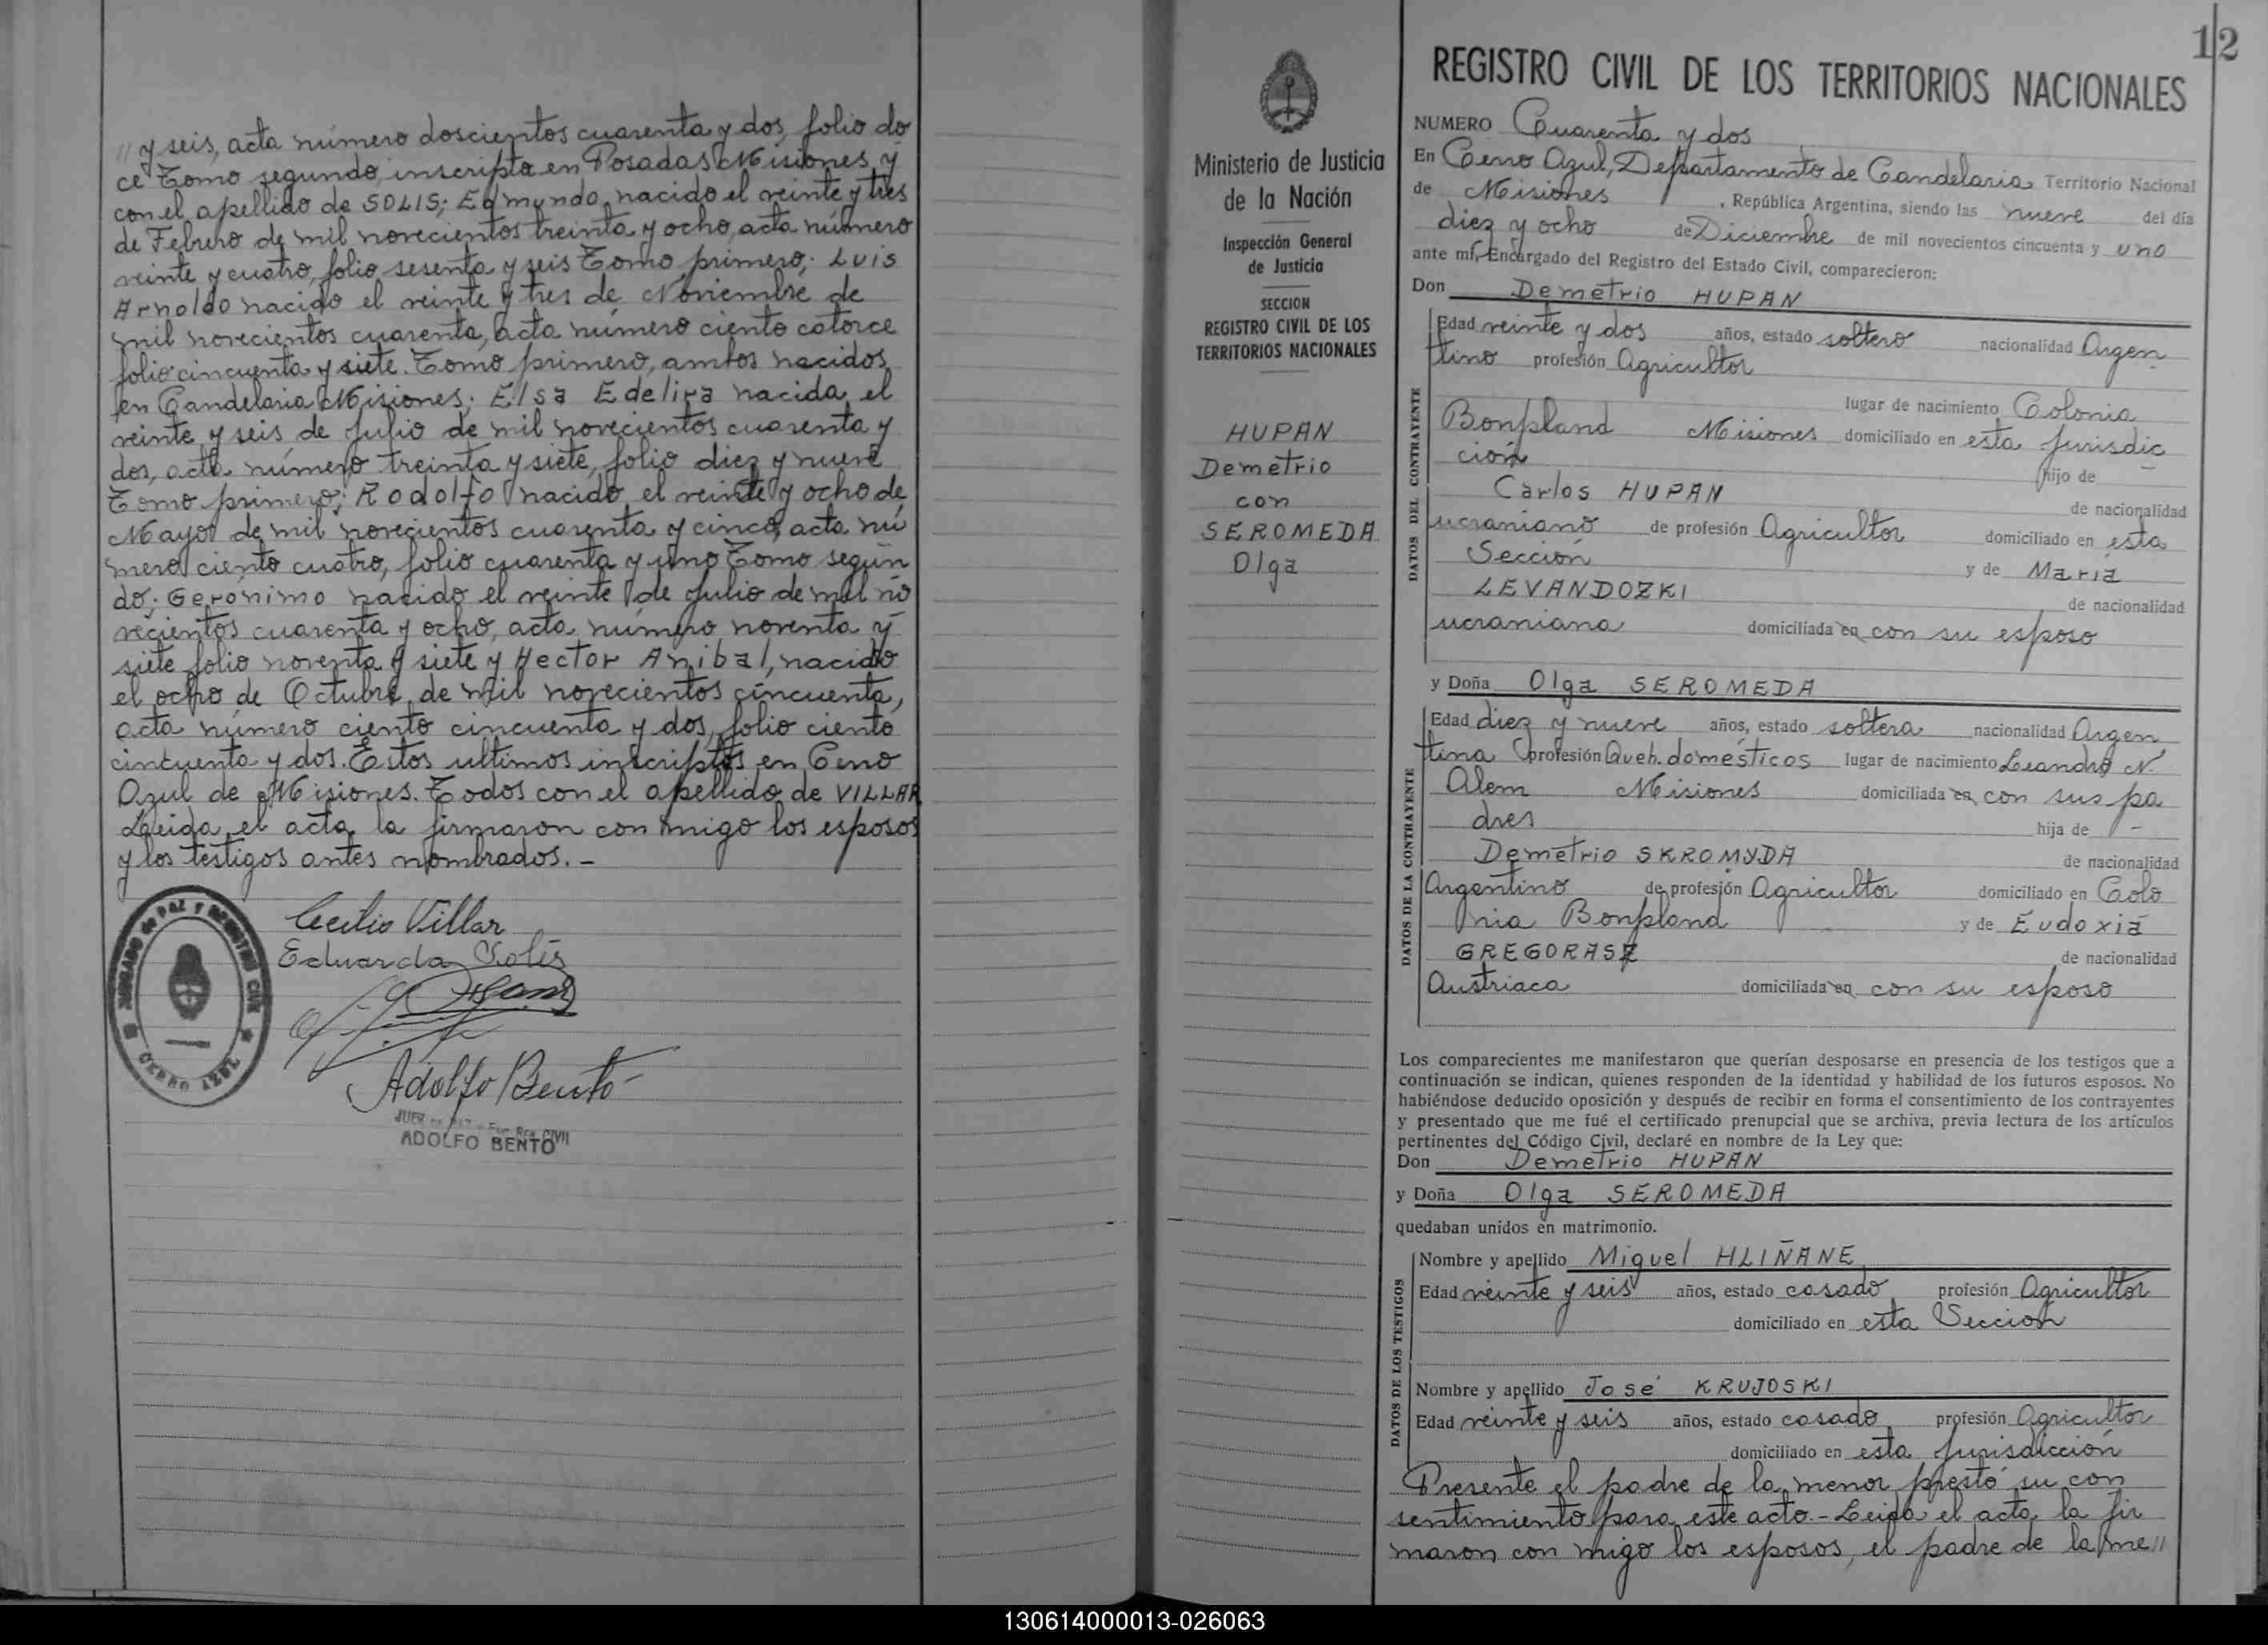 // y seis, acta número doscientos cuarenta y dos, folio do
ce Tomo segundo, inscripta en Posadas Misiones y
con el apellido de SOLIS; Edmundo, nacido el veinte y tres
de Febrero de mil novecientos treinta y ocho, acta número
veinte y cuatro, folio sesenta y seis Tomo primero; Luis
Arnoldo nacido el veinte y tres de Noviembre de
mil novecientos cuarenta, acta número ciento catorce
folio cincuenta y siete. Tomo primero, ambos nacidos
en Candelaria Misiones; Elsa Edelira nacida el
veinte y seis de Julio de mil novecientos cuarenta y
dos, acta número treinta y siete, folio diez y nueve
Tomo primero; Rodolfo nacido el veinte y ocho de
Mayo de mil novecientos cuarenta y cinco, acta nú
mero ciento cuatro, folio cuarenta y uno Tomo segun
do; Gerónimo nacido el veinte de Julio de mil no
vecientos cuarenta y ocho, acta número noventa y
siete folio noventa y siete y Hector Anibal, nacido
el ocho de Octubre de mil novecientos cincuenta,
acta número ciento cincuenta y dos, folio ciento
cincuenta y dos. Estos ultimos inscriptos en Cerro
Azul de Misiones. Todos con el apellido de VILLAR
Leida el acta la firmaron con migo los esposos
y los testigos antes nombrados. -
JUZGADO de PAZ y REGISTRO CIVIL
CERRO AZUL
Cecilio Villar
Eduarda Solis
Adolfo Bento
JUEZ DE PAZ - Enc. Reg. CIVIL
ADOLFO BENTO
Ministerio de Justicia
de la Nación
Inspección General
de Justicia
SECCION
REGISTRO CIVIL DE LOS
TERRITORIOS NACIONALES
HUPAN
Demetrio
con
SEROMEDA
Olga
12
REGISTRO CIVIL DE LOS TERRITORIOS NACIONALES
NUMERO Cuarenta y dos
En Cerro Azul, Departamento de Candelaria Territorio Nacional
de Misiones , República Argentina, siendo las nueve del día
diez y ocho de Diciembre de mil novecientos cincuenta y uno
ante mí, Encargado del Registro del Estado Civil, comparecieron:
Don Demetrio HUPAN
DATOS DEL CONTRAYENTE
Edad veinte y dos años, estado soltero nacionalidad Argen
tino profesión Agricultor
lugar de nacimiento Colonia
Bonpland Misiones domiciliado en esta Jurisdic
ción hijo de
Carlos HUPAN de nacionalidad
ucraniano de profesión Agricultor domiciliado en esta
Sección y de María
LEVANDOZKI de nacionalidad
ucraniana domiciliada en con su esposo
y Doña Olga SEROMEDA
DATOS DE LA CONTRAYENTE
Edad diez y nueve años, estado soltera nacionalidad Argen
tina profesión Queh. domésticos lugar de nacimiento Leandro N.
Alem Misiones domiciliada en con sus pa
dres hija de -
Demetrio SKROMYDA de nacionalidad
Argentino de profesión Agricultor domiciliado en Colo
nia Bonpland y de Eudoxia
GREGORASZ de nacionalidad
Austriaca domiciliada en con su esposo
Los comparecientes me manifestaron que querían desposarse en presencia de los testigos que a
continuación se indican, quienes responden de la identidad y habilidad de los futuros esposos. No
habiéndose deducido oposición y después de recibir en forma el consentimiento de los contrayentes
y presentado que me fué el certificado prenupcial que se archiva, previa lectura de los artículos
pertinentes del Código Civil, declaré en nombre de la Ley que:
Don Demetrio HUPAN
y Doña Olga SEROMEDA
quedaban unidos en matrimonio.
DATOS DE LOS TESTIGOS
Nombre y apellido Miguel HLIÑANE
Edad veinte y seis años, estado casado profesión Agricultor
domiciliado en esta Sección
Nombre y apellido José KRUJOSKI
Edad veinte y seis años, estado casado profesión Agricultor
domiciliado en esta Jurisdicción
Presente el padre de la menor prestó su con
sentimiento para este acto. - Leida el acta la fir
maron con migo los esposos, el padre de la me//
130614000013-026063